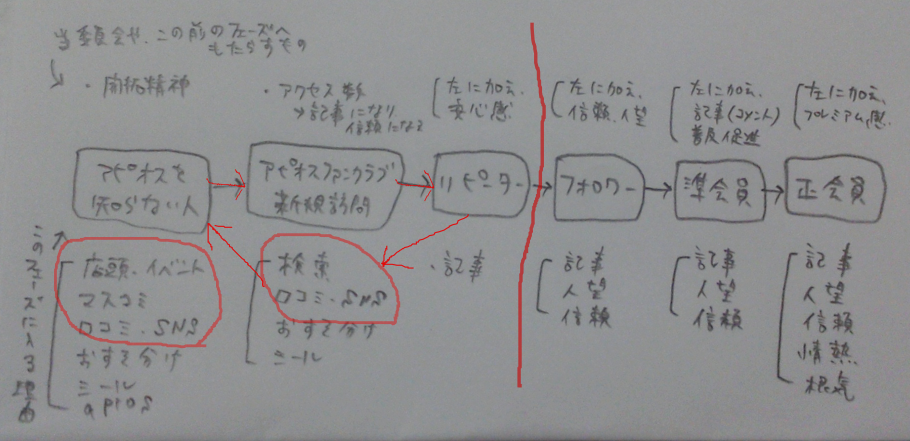 当委員会や、この前のフェーズへ
もたらすもの
・開拓精神
・アクセス数
→記事になり
信頼になる
左に加え、
安心感
左に加え、
信頼、人望
左に加え、
記事(コメント)
普及促進
左に加え、
プレミアム感
アピオスを
知らない人
アピオスファンクラブ
新規訪問
リピーター
フォロワー
準会員
正会員
このフェーズに入る理由
店頭、イベント
マスコミ
口コミ・SNS
おすそ分け
ミール
apios
検索
口コミ・SNS
おすそ分け
ミール
・記事
記事
人望
信頼
記事
人望
信頼
記事
人望
信頼
情熱
根気